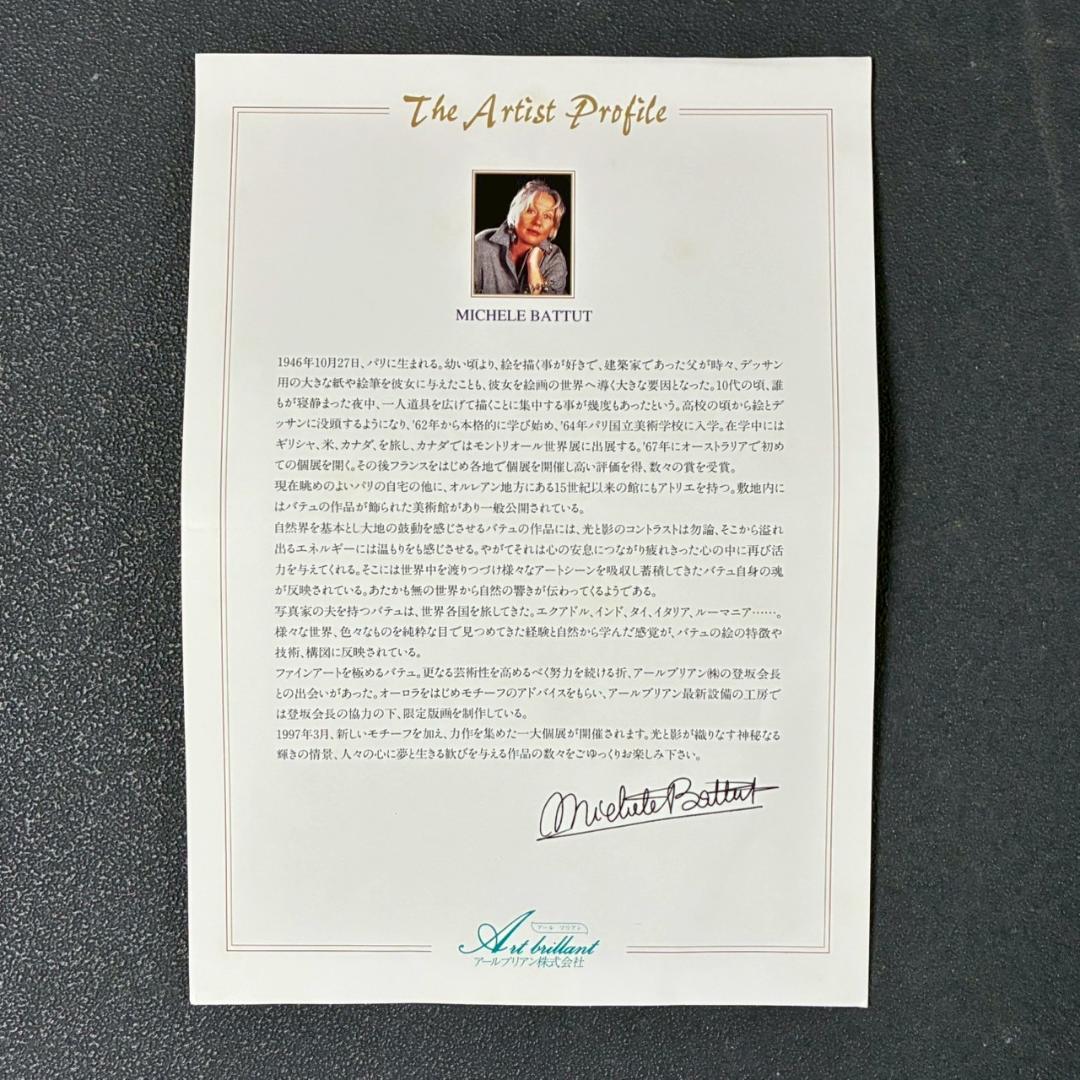 The Artist Profile
MICHELE BATTUT
1946年10月27日、パリに生まれる。幼い頃より、絵を描く事が好きで、建築家であった父が時々、デッサン
用の大きな紙や絵筆を彼女に与えたことも、彼女を絵画の世界へ導く大きな要因となった。10代の頃、誰
もが寝静まった夜中、一人道具を広げて描くことに集中する事が幾度もあったという。高校の頃から絵とデ
ッサンに没頭するようになり、'62年から本格的に学び始め、'64年パリ国立美術学校に入学。在学中には
ギリシャ、米、カナダ、を旅し、カナダではモントリオール世界展に出展する。'67年にオーストラリアで初め
ての個展を開く。その後フランスをはじめ各地で個展を開催し高い評価を得、数々の賞を受賞。
現在眺めのよいパリの自宅の他に、オルレアン地方にある15世紀以来の館にもアトリエを持つ。敷地内に
はバテュの作品が飾られた美術館があり一般公開されている。
自然界を基本とし大地の鼓動を感じさせるバテュの作品には、光と影のコントラストは勿論、そこから溢れ
出るエネルギーには温もりをも感じさせる。やがてそれは心の安息につながり疲れきった心の中に再び活
力を与えてくれる。そこには世界中を渡りつづけ様々なアートシーンを吸収し蓄積してきたバテュ自身の魂
が反映されている。あたかも無の世界から自然の響きが伝わってくるようである。
写真家の夫を持つバテュは、世界各国を旅してきた。エクアドル、インド、タイ、イタリア、ルーマニア……。
様々な世界、色々なものを純粋な目で見つめてきた経験と自然から学んだ感覚が、バテュの絵の特徴や
技術、構図に反映されている。
ファインアートを極めるバテュ。更なる芸術性を高めるべく努力を続ける折、アールブリアン㈱の登坂会長
との出会いがあった。オーロラをはじめモチーフのアドバイスをもらい、アールブリアン最新設備の工房で
は登坂会長の協力の下、限定版画を制作している。
1997年3月、新しいモチーフを加え、力作を集めた一大個展が開催されます。光と影が織りなす神秘なる
輝きの情景、人々の心に夢と生きる歓びを与える作品の数々をごゆっくりお楽しみ下さい。
Michele Battut
アール ブリアン
Art brillant
アールブリアン株式会社